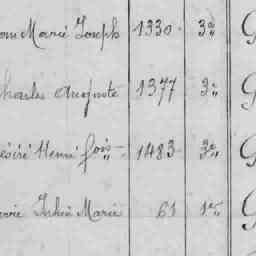 Marie Joseph 1330 3e G
Charles Auguste 1377 3e G
Désiré Henri fois 1483 3e G
Marie 61 1re G